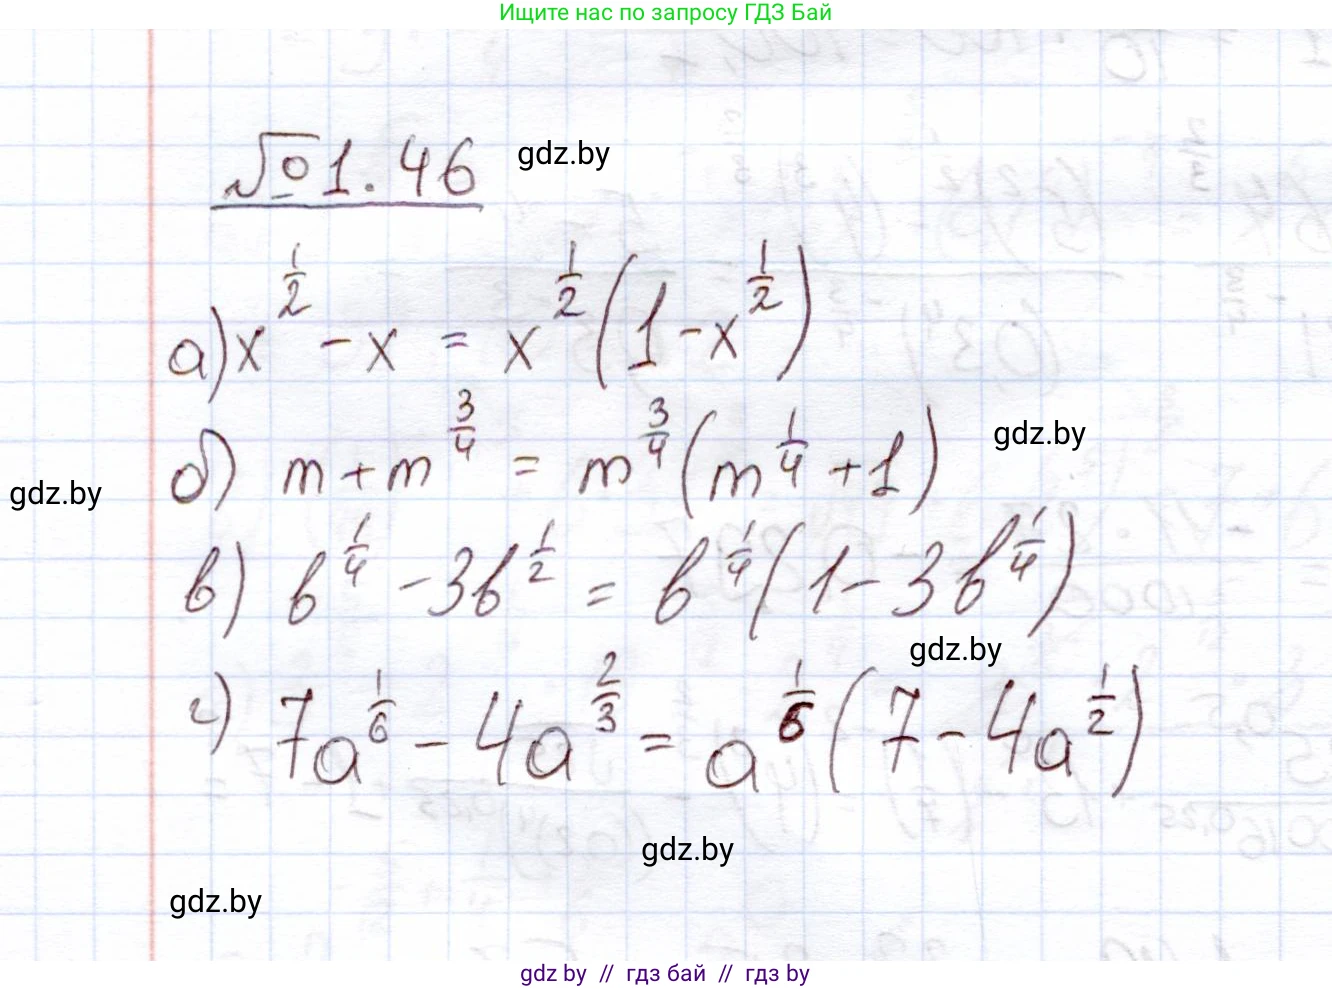 Ищите нас по запросу ГДЗ Бай
№1.46
gdz.by
а) x^{1/2} - x = x^{1/2}(1 - x^{1/2})
б) m + m^{3/4} = m^{3/4}(m^{1/4} + 1)
gdz.by
gdz.by
в) b^{1/4} - 3b^{1/2} = b^{1/4}(1 - 3b^{1/4})
gdz.by
г) 7a^{1/6} - 4a^{2/3} = a^{1/6}(7 - 4a^{1/2})
gdz.by
gdz.by
gdz by // гдз бай // гдз by